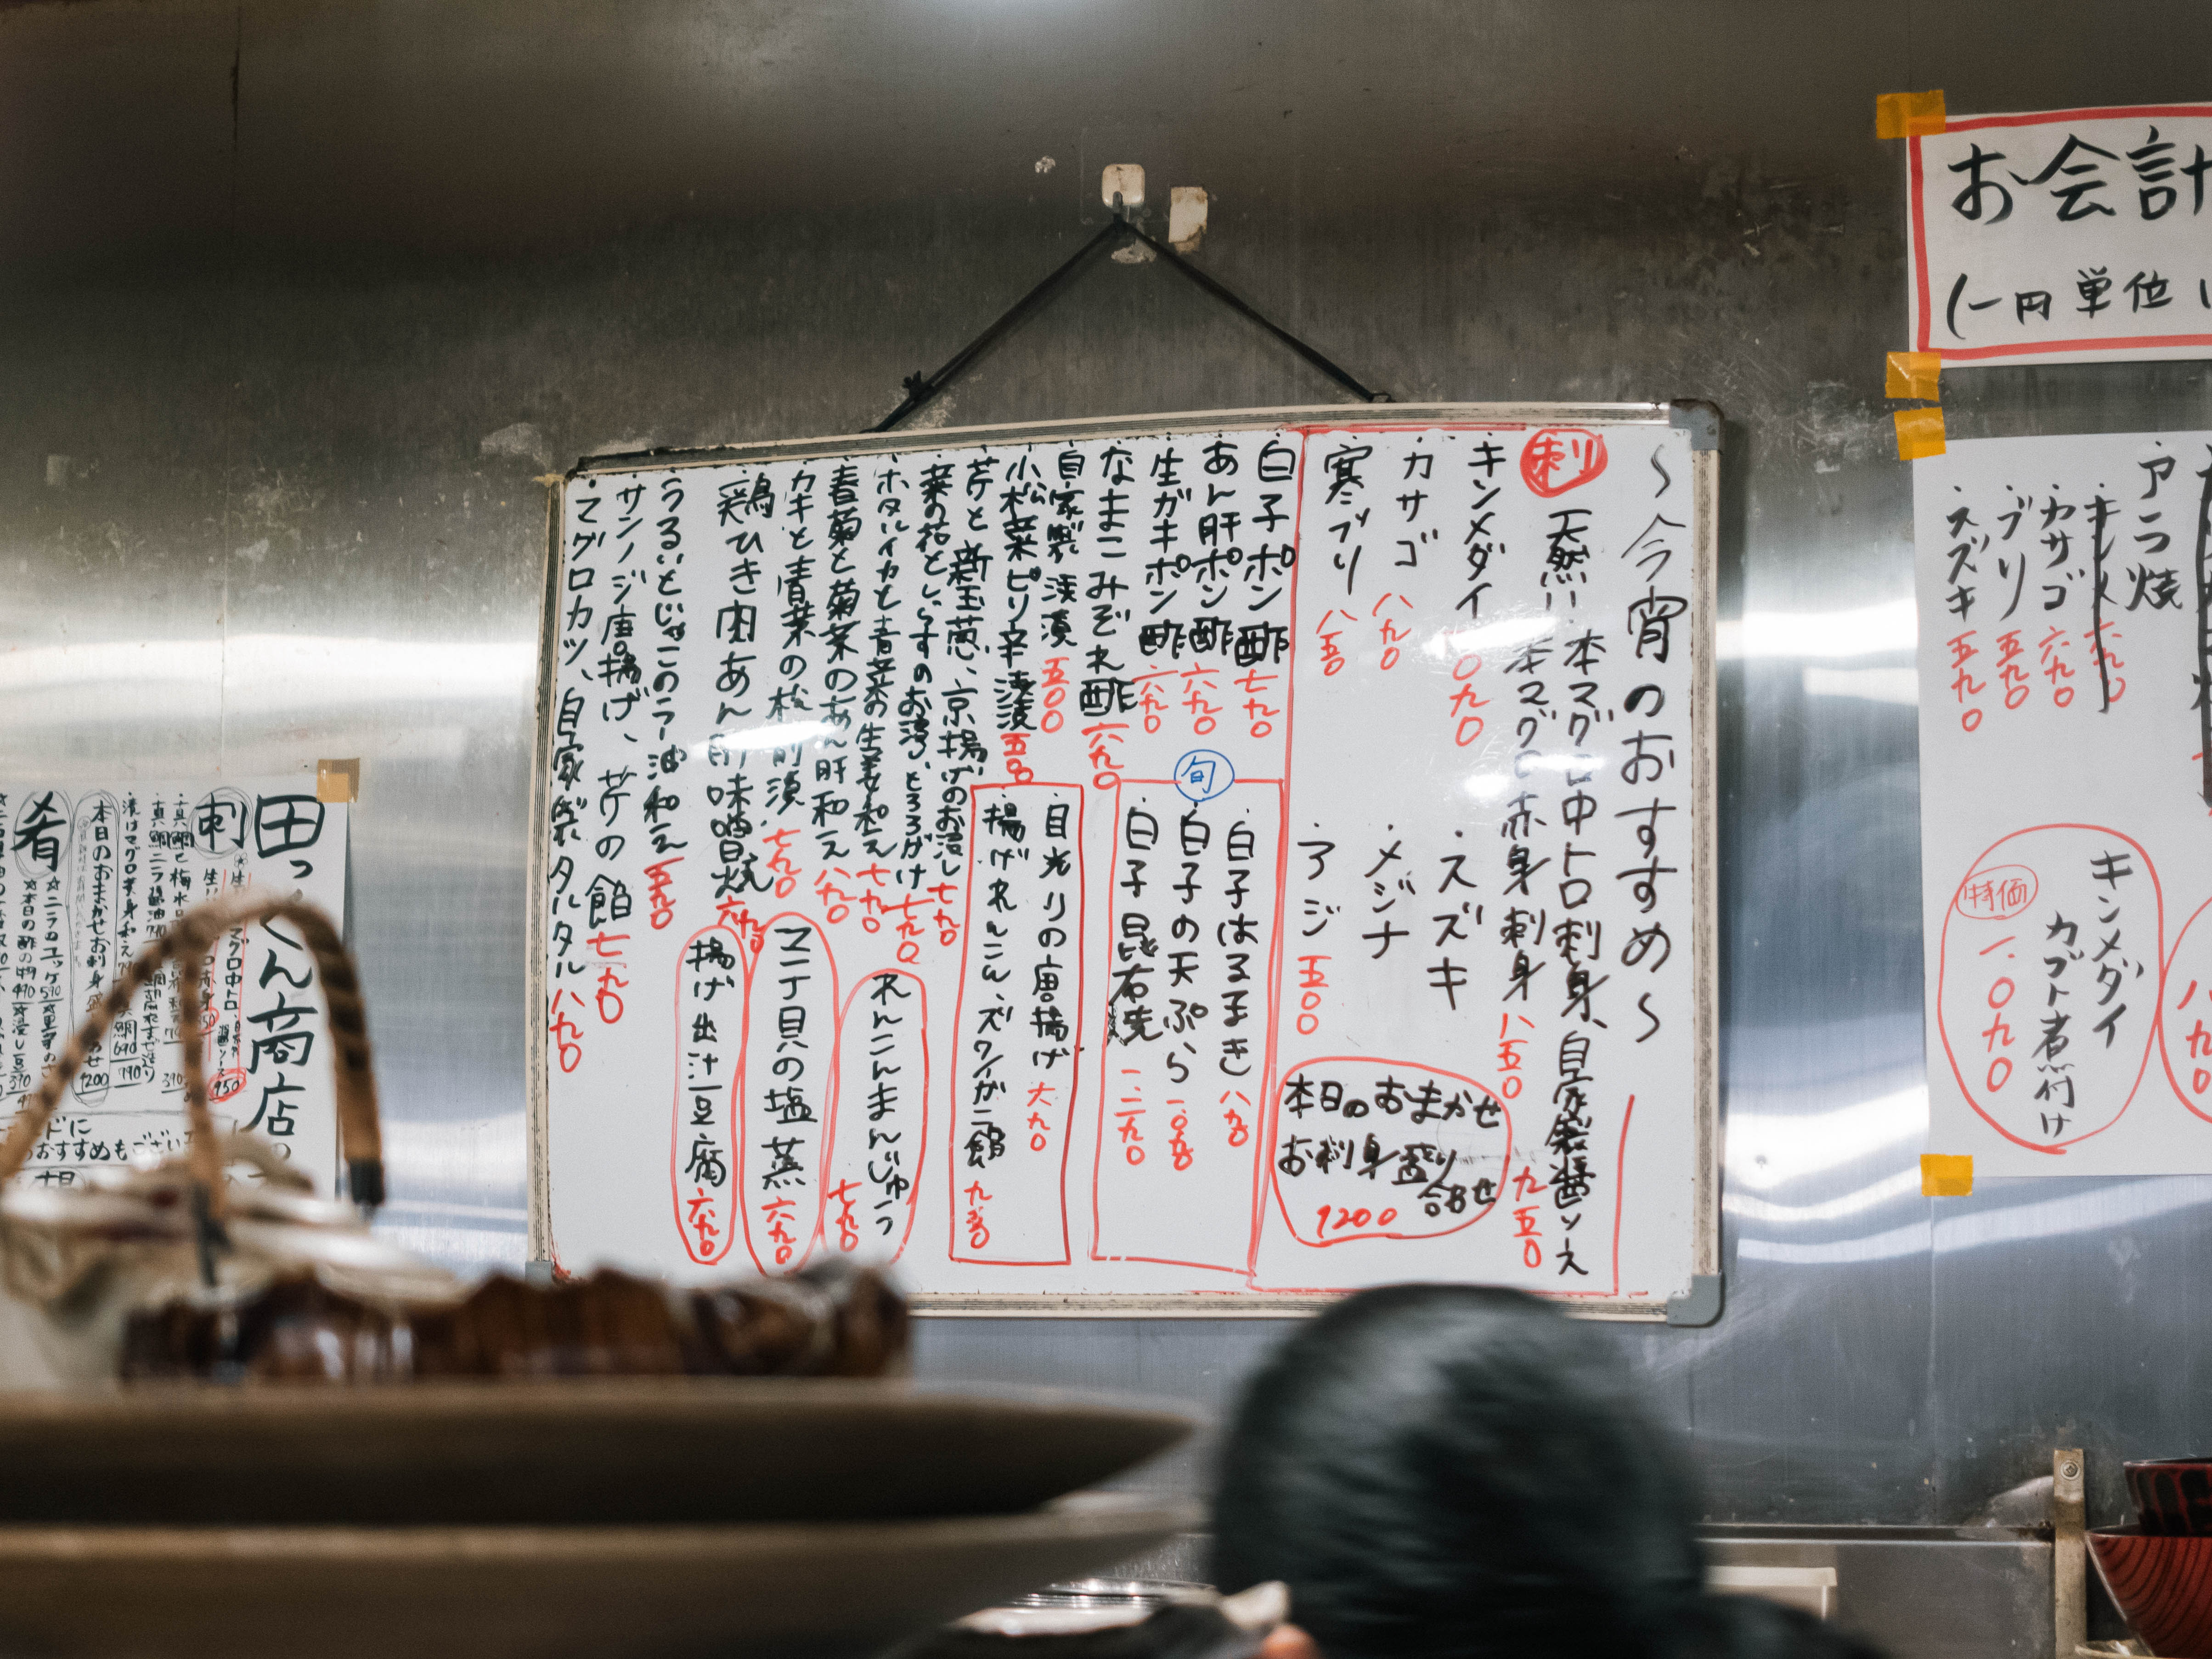 〜今宵のおすすめ〜
刺
天然本マグロ中トロ刺身、自家製醤油ソース 九五〇
本マグロ赤身刺身 八五〇
キンメダイ 一〇九〇
カサゴ 八九〇
寒ブリ 八五〇
スズキ
メジナ
アジ 五〇〇
本日のおまかせ
お刺身盛り
合わせ
1200
白子ポン酢 七九〇
あん肝ポン酢 六九〇
生ガキポン酢 六九〇
なまこみぞれ酢 六九〇
旬
白子はるまき 八九〇
白子の天ぷら 一、〇九〇
白子昆布焼 一、二九〇
自家製漬 五〇〇
小松菜ピリ辛漬 五〇〇
目光りの唐揚げ 六九〇
揚げれんこん、ズワイガニ餡 九五〇
芹と新玉葱、京揚げのお浸し 七九〇
菜の花としらすのお浸し、とろろがけ 七九〇
ホタルイカと青菜の生姜和え 七九〇
春菊と菊菜のあん肝和え 八九〇
カキと青菜の松前漬 七九〇
鶏ひき肉あん肝味噌焼 六九〇
うるいとじゃこのラー油和え 五九〇
サンノジ唐揚げ、芹の餡 七九〇
マグロカツ、自家製タルタル 八九〇
れんこんまんじゅう 七九〇
マテ貝の塩蒸 六九〇
揚げ出汁豆腐 六九〇
お会計
(一円単位
アラ焼
キンメ 六九〇
カサゴ 六九〇
ブリ 五九〇
スズキ 五九〇
キンメダイ
カブト煮付け
特価
一、〇九〇
八九〇
田
ん商店
刺
マグロ中トロ
950
本日のおまかせお刺身盛
1200
肴
☆本日の酢の物 490
おすすめもござい